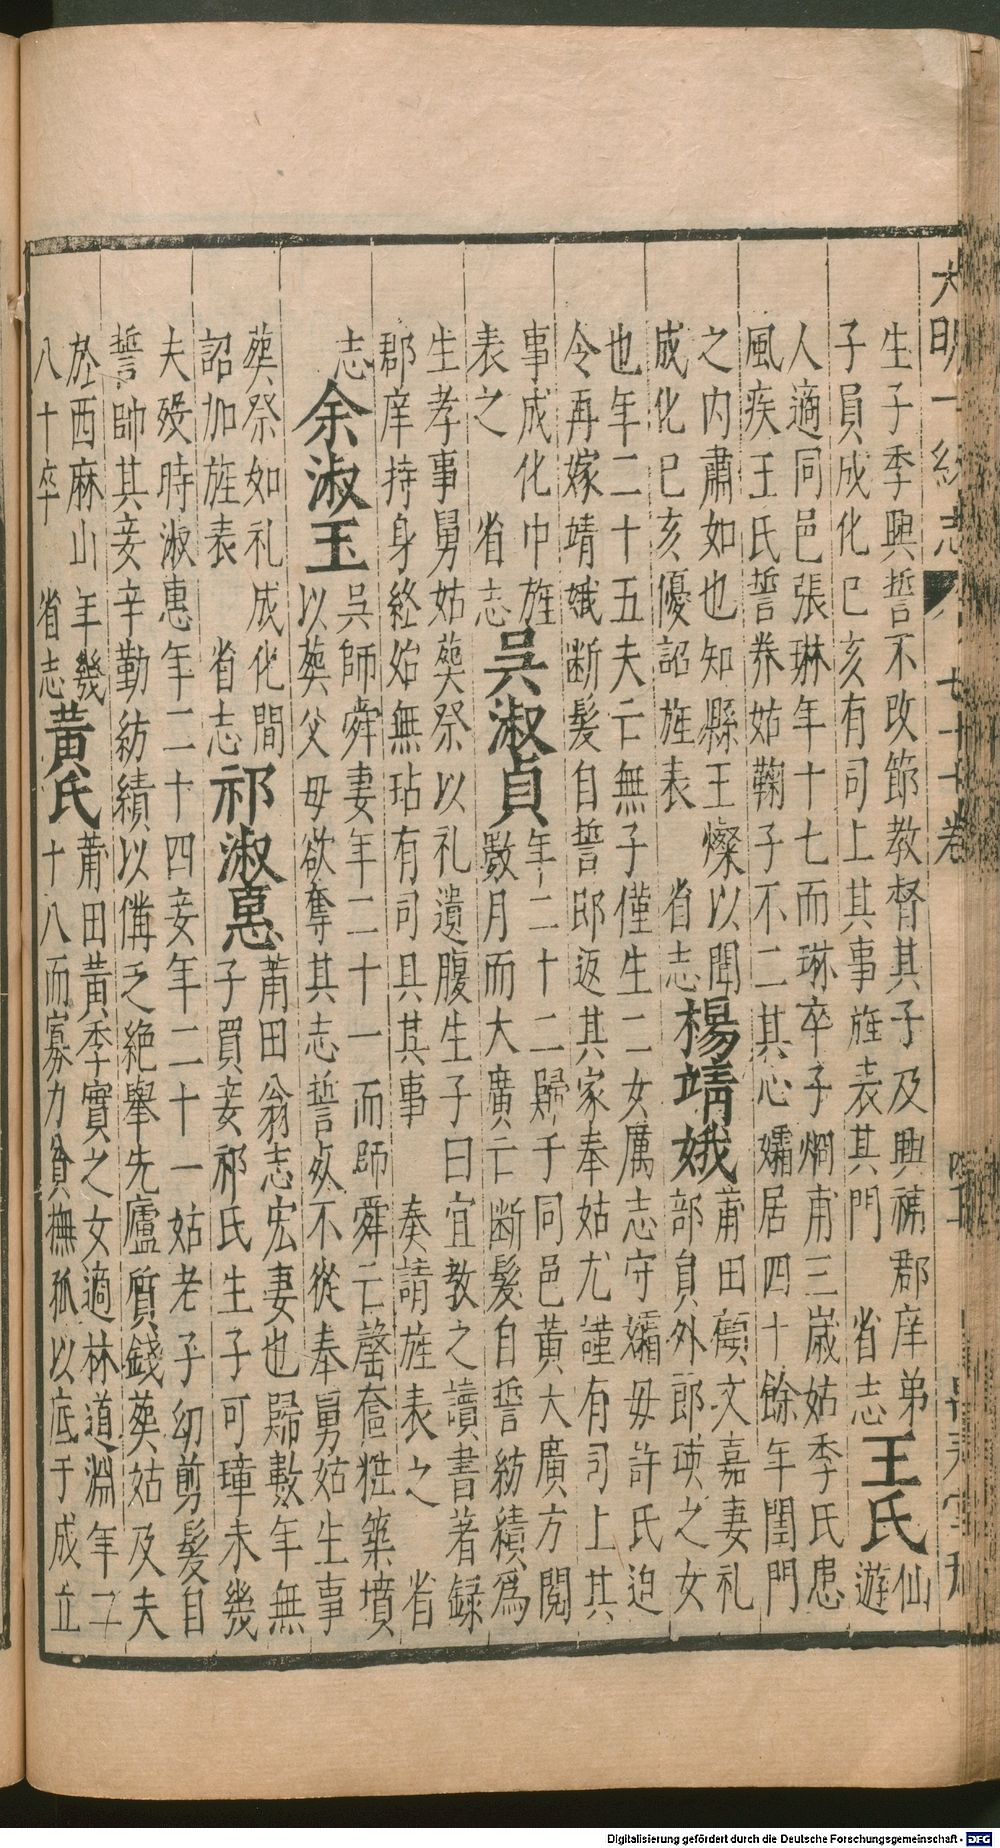 大明一統志 七十七卷
生子季興誓不改節教督其子及興補郡庠弟
子員成化己亥有司上其事旌表其門 省志 王氏 仙遊
人適同邑張琳年十七而琳卒子炯甫三歲姑季氏患
風疾王氏誓养姑鞠子不二其心孀居四十餘年閨門
之内肅如也知縣王燦以聞
成化己亥優詔旌表 省志 楊靖娥 莆田顧文嘉妻礼
部員外郎瑛之女
也年二十五夫亡無子僅生二女厲志守孀母許氏迫
令再嫁靖娥断髮自誓即返其家奉姑尤謹有司上其
事成化中旌
表之 省志 吳淑貞 年二十二歸于同邑黃大廣方閱
數月而大廣亡断髮自誓紡績爲
生孝事舅姑葬祭以礼遺腹生子曰宜教之讀書著録
郡庠持身終始無玷有司具其事 奏請旌表之 省
志 余淑玉 吳師舜妻年二十一而師舜亡罄奩粧築墳
以葬父母欲奪其志誓死不從奉舅姑生事
葬祭如礼成化間
詔加旌表 省志 祁淑惠 莆田翁志宏妻也歸數年無
子買妾祁氏生子可璋未幾
夫殁時淑惠年二十四妾年二十一姑老子幼剪髮自
誓帥其妾辛勤紡績以備乏絶舉先廬質錢葬姑及夫
於西麻山年幾
八十卒 省志 黃氏 莆田黃季實之女適林道淵年二
十八而寡力貧撫孤以底于成立
Digitalisierung gefördert durch die Deutsche Forschungsgemeinschaft - DFG